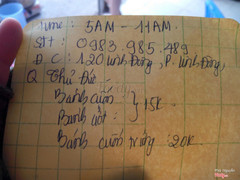 Time: 5AM - 11AM.
SĐT: 0983.985.489
Đ.C: 120 Linh Đông, P. Linh Đông,
Q. Thủ Đức
Bánh cuốn: } 15K
Bánh ướt:
Bánh cuốn trứng: 20K